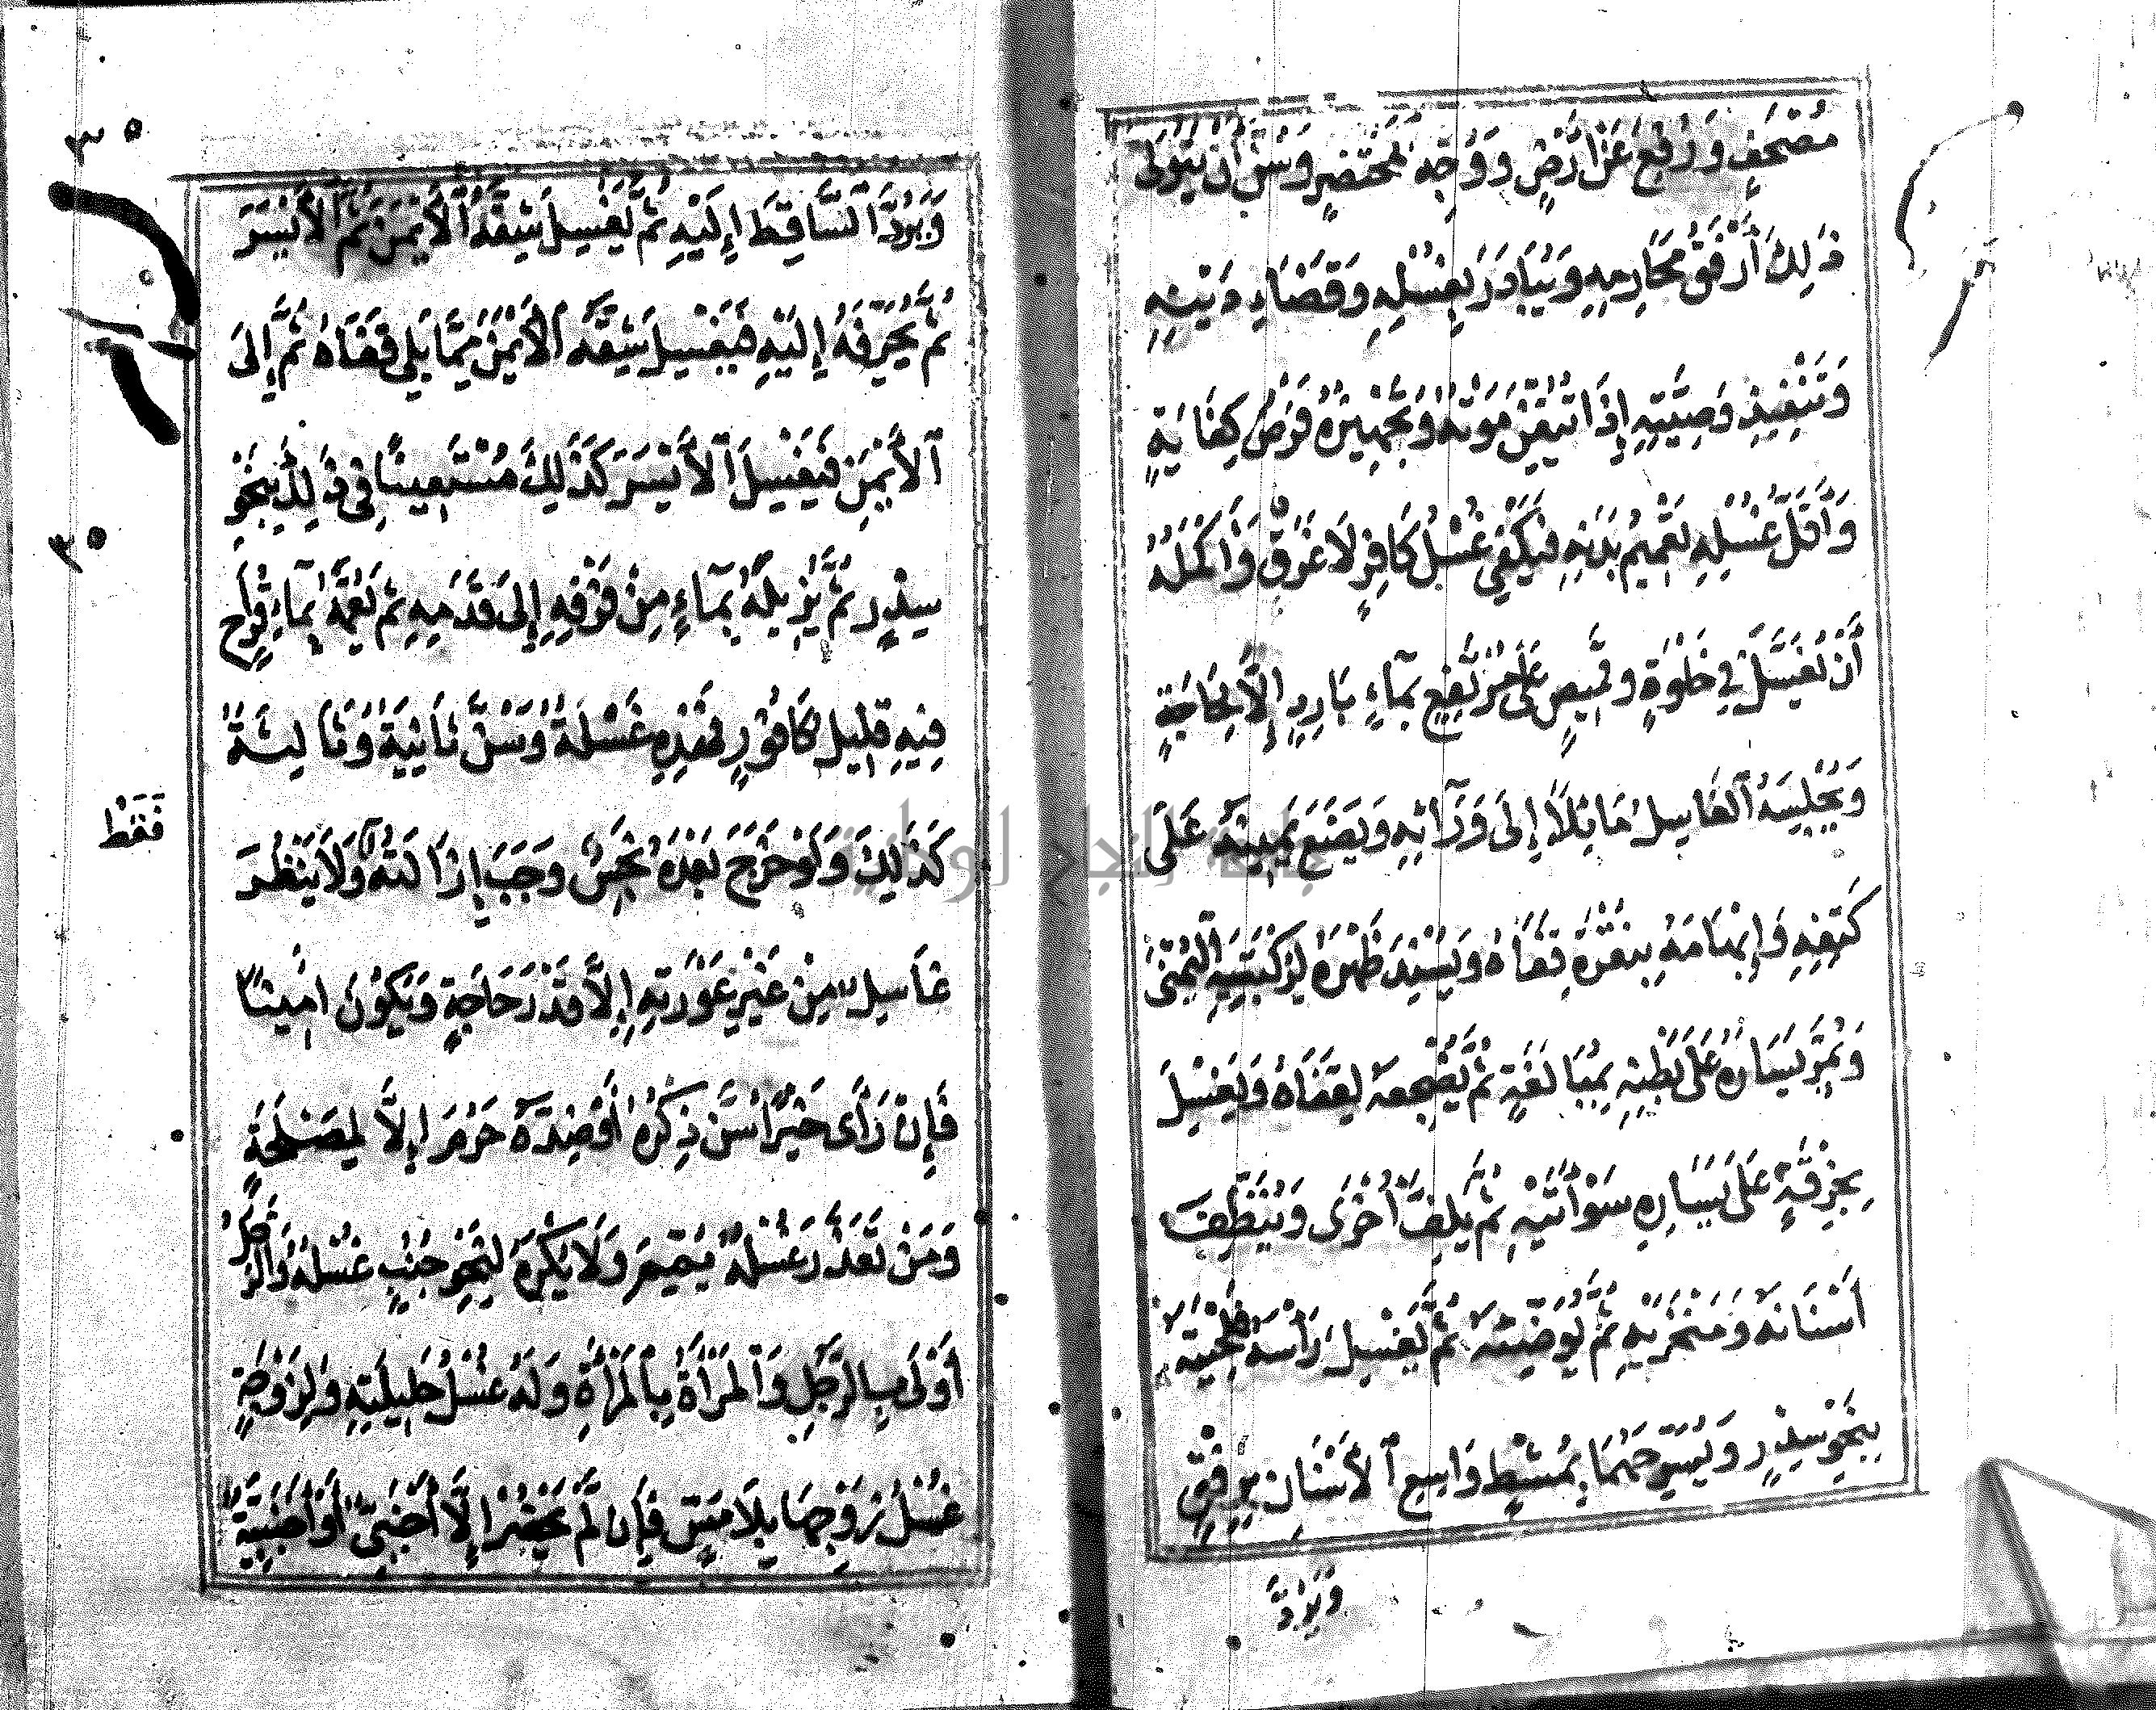 مُصْحَفٍ وَرُفِعَ عَنْ أَرْضٍ وَوُجِّهَ كَمُحْتَضِرٍ وَسُنَّ أَنْ يَتَوَلَّى
ذَلِكَ أَرْفَقُ مَحَارِمِهِ وَيُبَادَرَ بِغُسْلِهِ وَقَضَاءِ دَيْنِهِ
وَتَنْفِيذِ وَصِيَّتِهِ إِذَا تُيُقِّنَ مَوْتُهُ وَتَجْهِيزُهُ فَرْضُ كِفَايَةٍ
وَأَقَلُّ غُسْلِهِ تَعْمِيمُ بَدَنِهِ فَيَكْفِي غُسْلُ كَافِرٍ لَا غَرَقٌ وَأَكْمَلُهُ
أَنْ يُغَسَّلَ فِي خَلْوَةٍ وَقَمِيصٍ عَلَى مُرْتَفِعٍ بِمَآءٍ بَارِدٍ إِلَّا لِحَاجَةٍ
وَيُجْلِسَهُ ٱلْغَاسِلُ مَائِلًا إِلَى وَرَآئِهِ وَيَضَعَ يَمِينَهُ عَلَى
كَتِفِهِ وَإِبْهَامَهُ بِنُقْرَةِ قَفَاهُ وَيُسْنِدَ ظَهْرَهُ لِرُكْبَتِهِ ٱلْيُمْنَى
وَيُمِرَّ يَسَارَهُ عَلَى بَطْنِهِ بِمُبَالَغَةٍ ثُمَّ يُضْجِعَهُ لِقَفَاهُ وَيَغْسِلَ
بِخِرْقَةٍ عَلَى يَسَارِهِ سَوْأَتَيْهِ ثُمَّ يَلُفَّ أُخْرَى وَيُنَظِّفَ
أَسْنَانَهُ وَمَنْخِرَيْهِ ثُمَّ يُوَضِّئَهُ ثُمَّ يَغْسِلَ رَأْسَهُ فَلِحْيَتَهُ
بِنَحْوِ سِدْرٍ وَيُسَرِّحَهُمَا بِمُشْطٍ وَاسِعِ ٱلْأَسْنَانِ بِرِفْقٍ
وَيَرُدَّ
٣٥
وَيَرُدَّ ٱلسَّاقِطَ إِلَيْهِ ثُمَّ يَغْسِلَ شِقَّهُ ٱلْأَيْمَنَ ثُمَّ ٱلْأَيْسَرَ
ثُمَّ يُحَرِّفَهُ إِلَيْهِ فَيَغْسِلَ شِقَّهُ ٱلْأَيْمَنَ مِمَّا يَلِي قَفَاهُ ثُمَّ إِلَى
ٱلْأَيْمَنِ فَيَغْسِلَ ٱلْأَيْسَرَ كَذَلِكَ مُسْتَعِينًا فِي ذَلِكَ بِنَحْوِ
٣٥
سِدْرٍ ثُمَّ يُزِيلَهُ بِمَآءٍ مِنْ فَرْقِهِ إِلَى قَدَمِهِ ثُمَّ يَعُمَّهُ بِمَآءٍ قَرَاحٍ
فِيهِ قَلِيلُ كَافُورٍ فَهَذِهِ غَسْلَةٌ وَسُنَّ ثَانِيَةٌ وَثَالِثَةٌ
كَذَلِكَ وَلَوْ خَرَجَ بَعْدَهُ نَجِسٌ وَجَبَ إِزَالَتُهُ وَلَا يَنْظُرَ
فَقَطْ
غَاسِلٌ مِنْ غَيْرِ عَوْرَتِهِ إِلَّا قَدْرَ حَاجَةٍ وَيَكُونَ أَمِينًا
فَإِنْ رَأَى خَيْرًا سُنَّ ذِكْرُهُ أَوْ ضِدَّهُ حَرُمَ إِلَّا لِمَصْلَحَةٍ
وَمَنْ تَعَذَّرَ غُسْلُهُ يُمِّمَ وَلَا يُكْرَهُ لِنَحْوِ جُنُبٍ غُسْلُهُ وَالرَّجُلُ
أَوْلَى بِالرَّجُلِ وَٱلْمَرْأَةُ بِالْمَرْأَةِ وَلَهُ غُسْلُ حَلِيلَتِهِ وَلِزَوْجَةٍ
غُسْلُ زَوْجِهَا بِلَا مَسٍّ فَإِنْ لَمْ يَحْضُرْ إِلَّا أَجْنَبِيٌّ أَوْ أَجْنَبِيَّةٌ